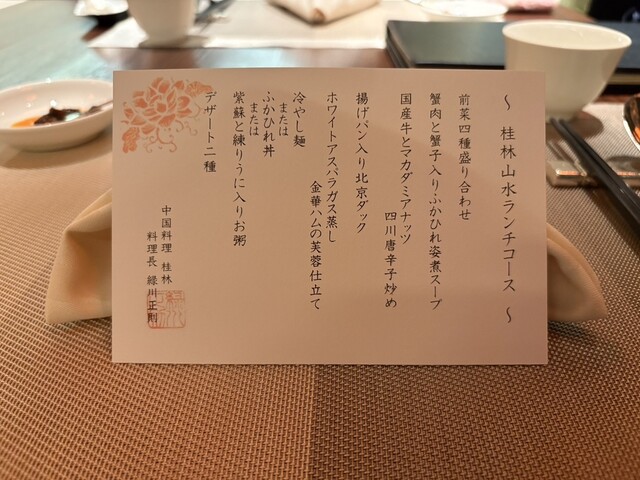 ～ 桂林山水ランチコース ～
前菜四種盛り合わせ
蟹肉と蟹子入りふかひれ姿煮スープ
国産牛とマカダミアナッツ
四川唐辛子炒め
揚げパン入り北京ダック
ホワイトアスパラガス蒸し
金華ハムの芙蓉仕立て
冷やし麺
または
ふかひれ丼
または
紫蘇と練りうに入りお粥
デザート二種
中国料理 桂林
料理長 緑川正則